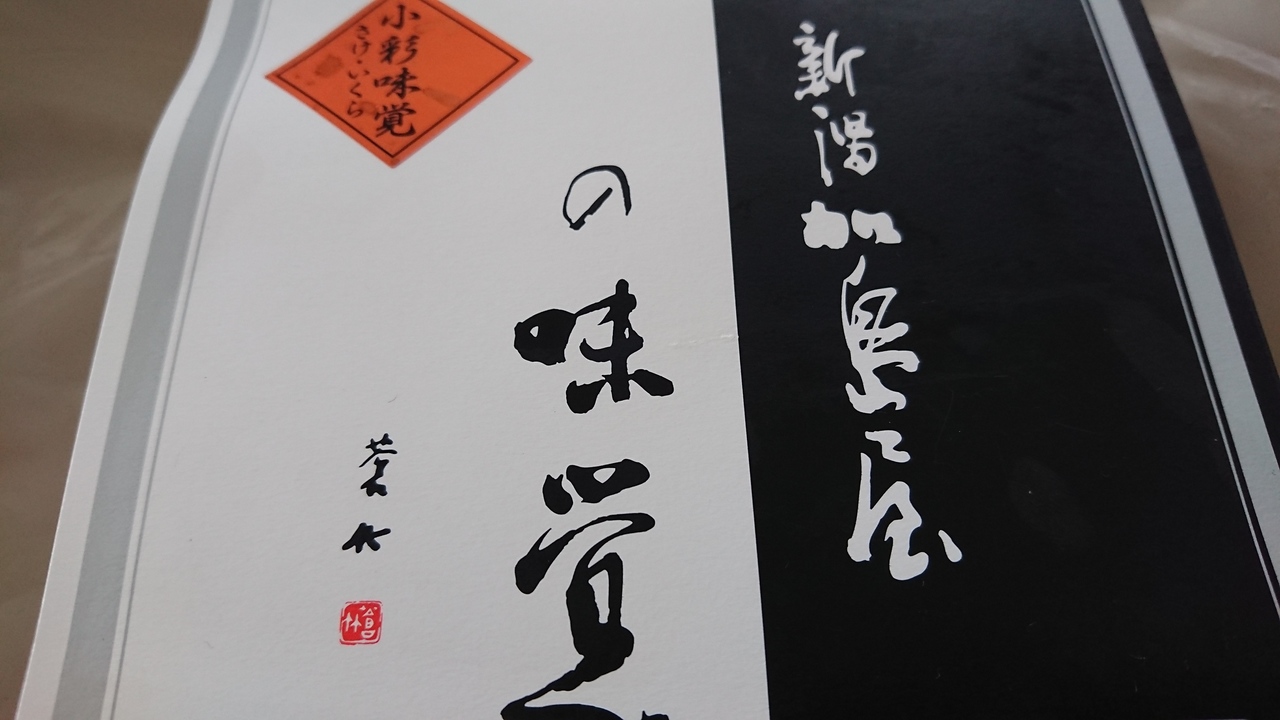 新潟加島屋
の味覚
小彩味覚
さけ・いくら